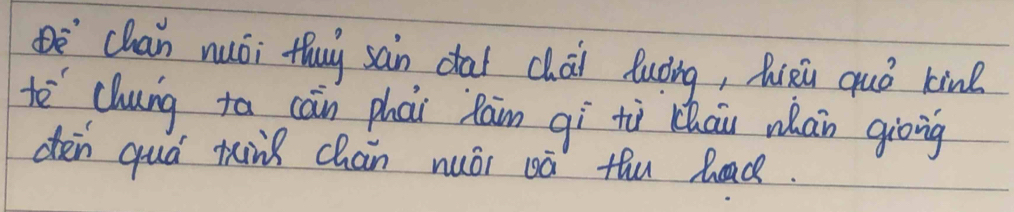 Để chăn nuôi thuỷ sản đạt chất lượng, hiệu quả kinh
tế chúng ta cần phải làm gì từ khâu nhân giống
đến quá trình chăn nuôi và thu hoạch.